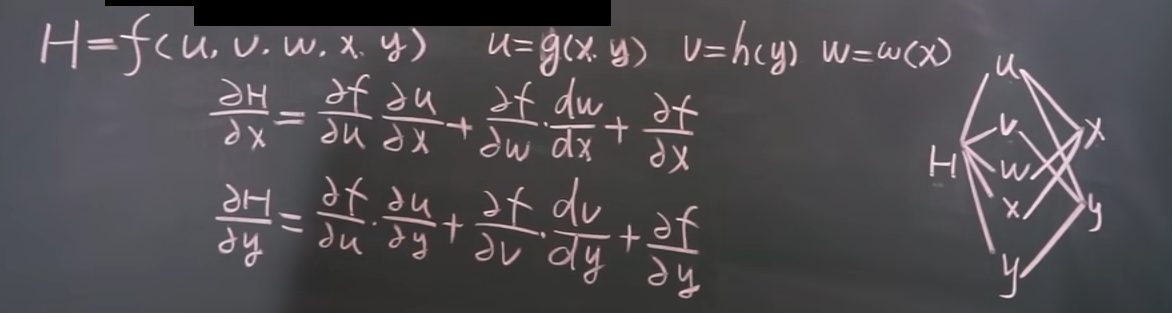 H=f(u, v, w, x, y) u=g(x, y) v=h(y) w=ω(x)
∂H/∂x = ∂f/∂u ∂u/∂x + ∂f/∂w · dw/dx + ∂f/∂x
∂H/∂y = ∂f/∂u · ∂u/∂y + ∂f/∂v · dv/dy + ∂f/∂y
u
v
x
H
w
x
y
y